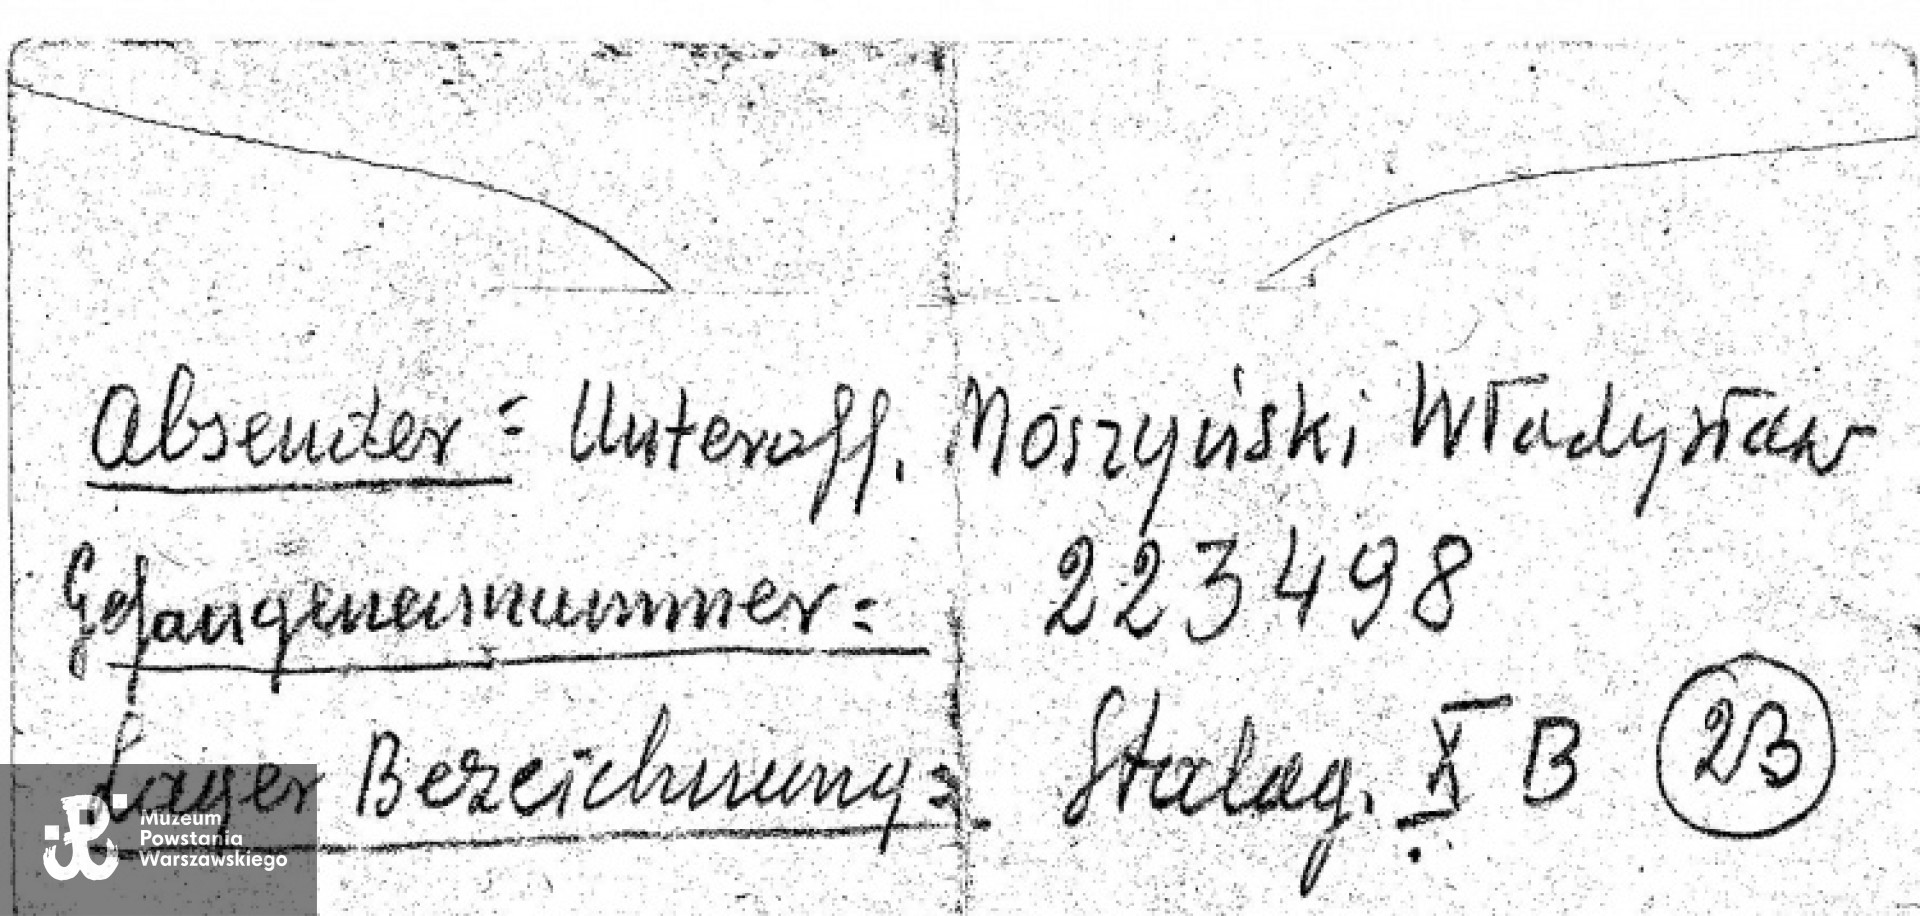 Absender = Unteroff. Moszyński Władysław
Gefangenennummer = 223498
Lager Bezeichnung = Stalag. X B 23
Muzeum
Powstania
Warszawskiego